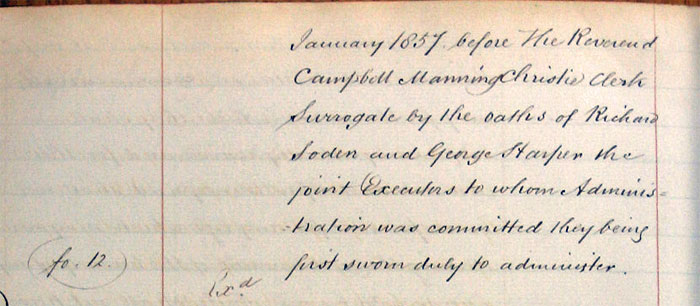 January 1857 before The Reverend
Campbell Manning Christie Clerk
Surrogate by the oaths of Richard
Soden and George Harper the
joint Executors to whom Adminis=
tration was committed they being
fo. 12. first sworn duly to administer.
Exd